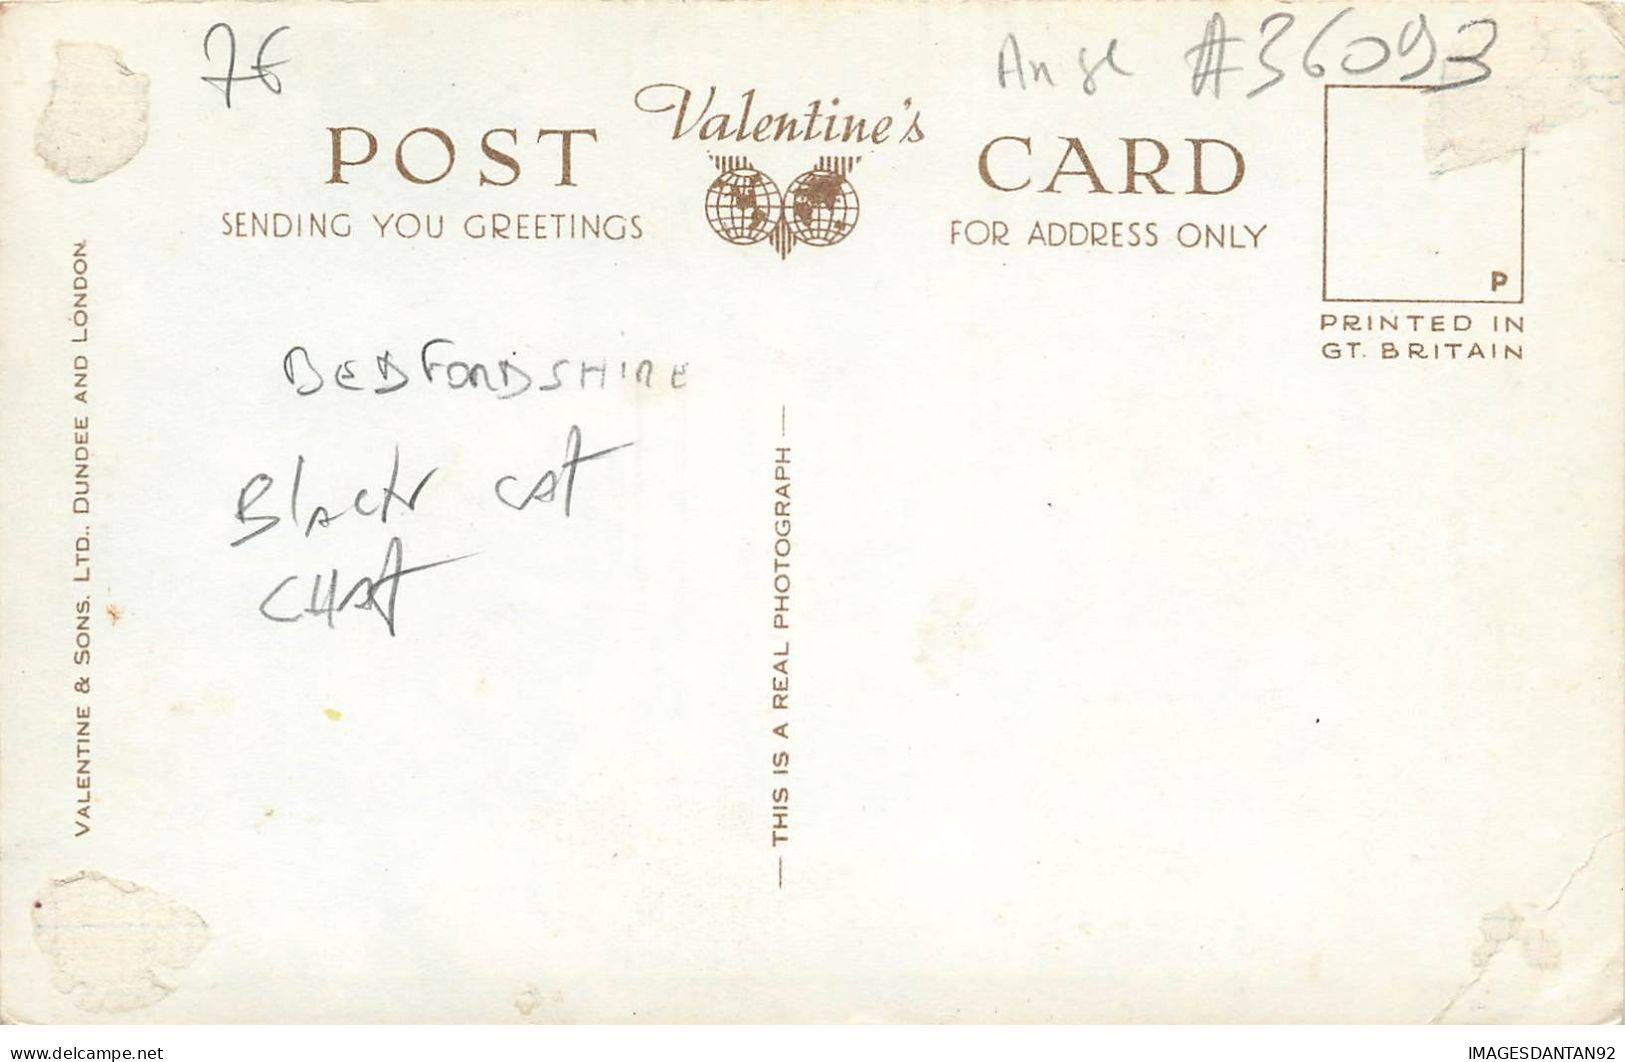 7€
Angl #36093
Valentine's
POST CARD
SENDING YOU GREETINGS
FOR ADDRESS ONLY
P
PRINTED IN
GT. BRITAIN
BEDFORDSHIRE
Black cat
CHAT
VALENTINE & SONS. LTD., DUNDEE AND LONDON.
— THIS IS A REAL PHOTOGRAPH —
www.delcampe.net
IMAGESDANTAN92